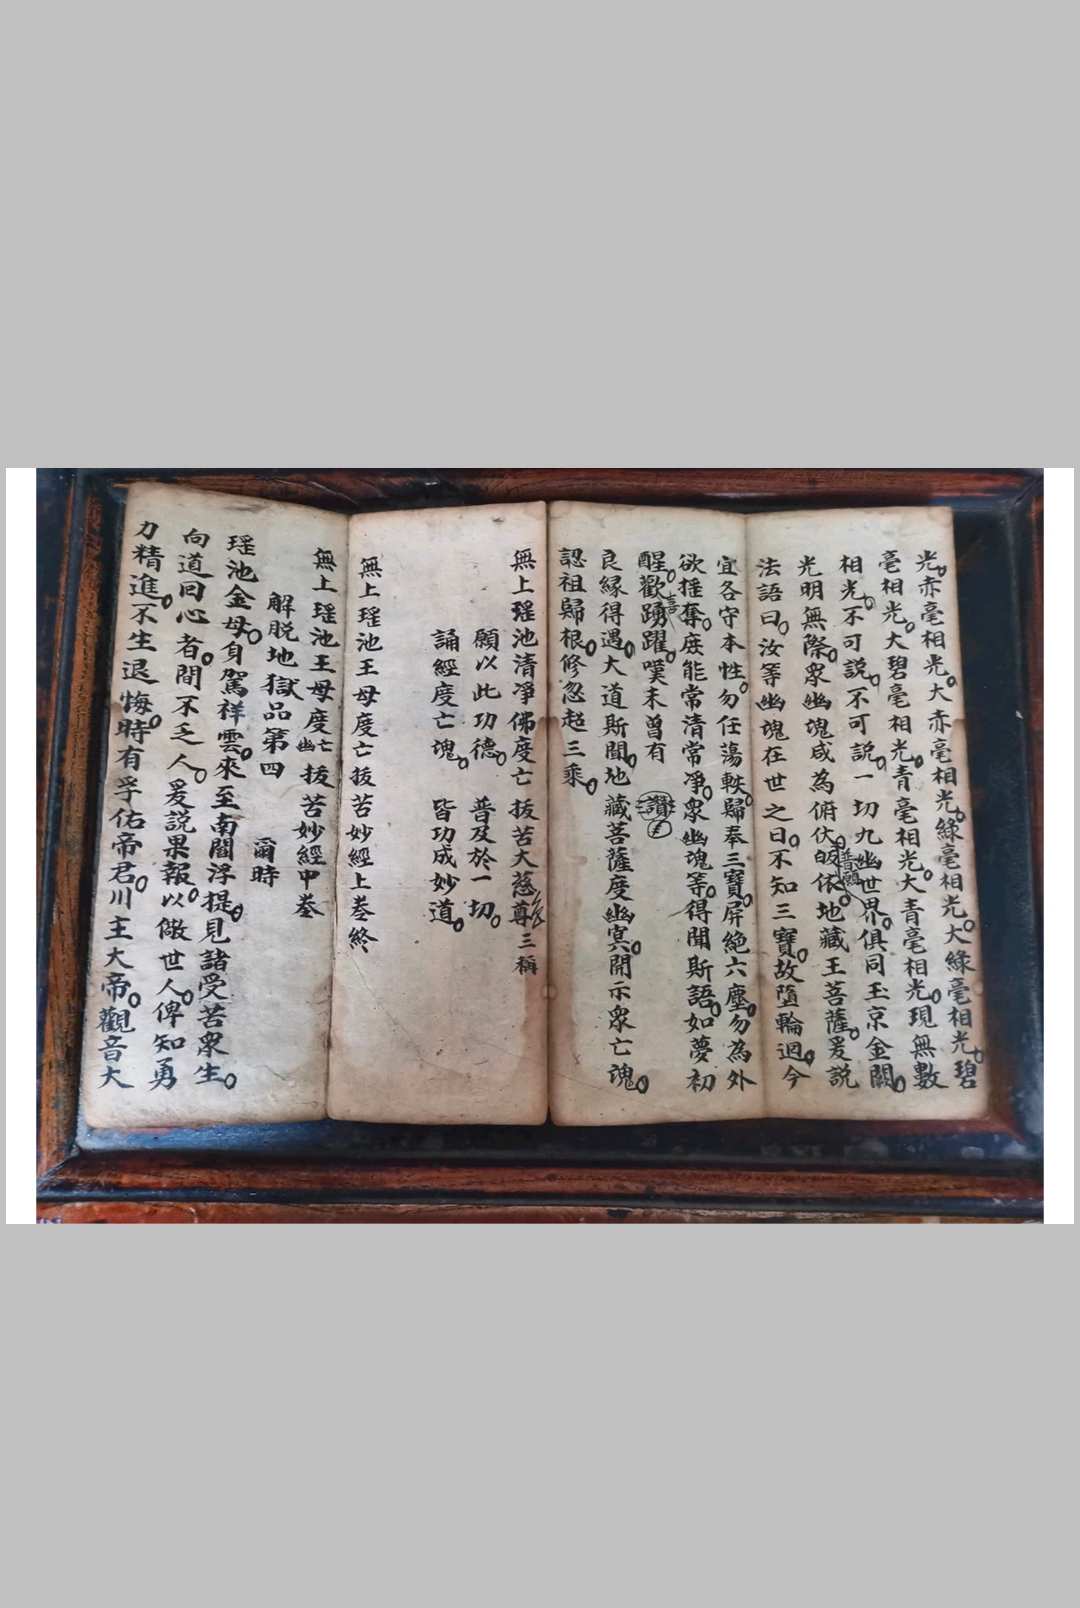 光赤毫相光大赤毫相光綠毫相光大綠毫相光碧
毫相光大碧毫相光青毫相光大青毫相光現無數
相光不可說不可說一切九幽世界俱同玉京金闕
光明無際眾幽魂咸為俯伏皈依普願地藏王菩薩爰說
法語曰汝等幽魂在世之日不知三寶故墮輪迴今
宜各守本性勿任蕩軼歸奉三寶屏絕六塵勿為外
欲搖奪庶能常清常凈眾幽魂等得聞斯語如夢初
醒歡喜踴躍嘆未曾有 讚
良緣得遇大道斯聞地藏菩薩度幽冥開示眾亡魂
認祖歸根修忽起三乘
無上瑤池清凈佛度亡拔苦大慈尊三稱
願以此功德 普及於一切
誦經度亡魂 皆功成妙道
無上瑤池王母度亡拔苦妙經上卷終
無上瑤池王母度亡幽拔苦妙經中卷
解脫地獄品第四 爾時
瑤池金母身駕祥雲來至南閻浮提見諸受苦眾生
向道回心者間不乏人爰說果報以儆世人俾知勇
力精進不生退悔時有孚佑帝君川主大帝觀音大